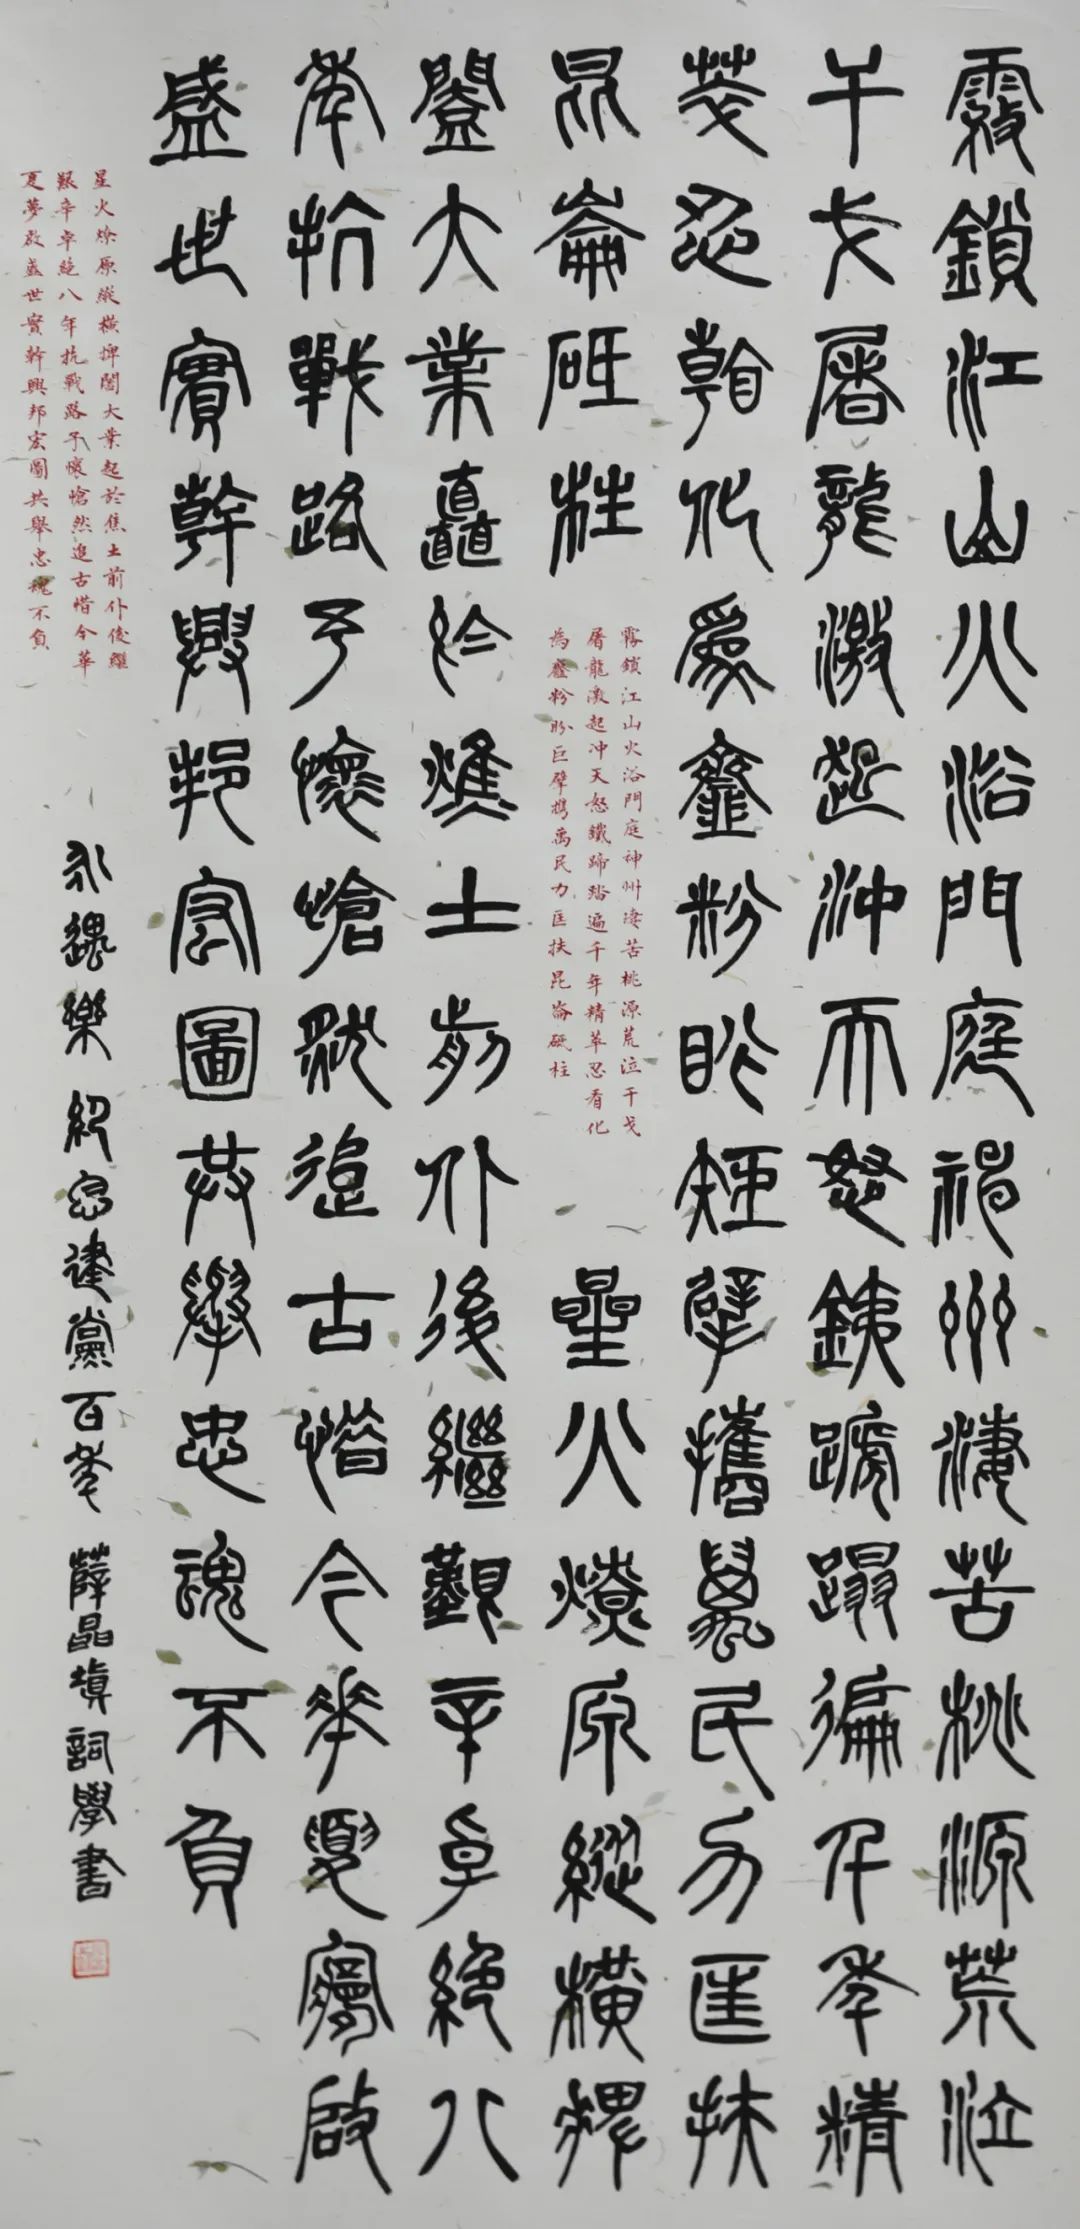 霧鎖江山火浴門庭神州淒苦桃源荒泣
干戈屠龍激起沖天怒鐵蹄蹋遍千年精
萃忍看化為齏粉盼巨擘攜萬民力匡扶
昆崙砥柱
霧鎖江山火浴門庭神州淒苦桃源荒泣干戈
屠龍激起冲天怒鐵蹄踏遍千年精萃忍看化
為齏粉盼巨擘攜萬民力匡扶昆崙砥柱
星火燎原縱橫捭
闔大業矗於焦土前仆後繼艱辛卓絕八
年抗戰路予懷愴然追古惜今華夏夢啟
盛世實幹興邦宏圖共舉忠魂不負
星火燎原縱橫捭闔大業起於焦土前仆後繼
艱辛卓絕八年抗戰路予懷愴然追古惜今華
夏夢啟盛世實幹興邦宏圖共舉忠魂不負
永遇樂 紀念建黨百年 薛晶填詞學書